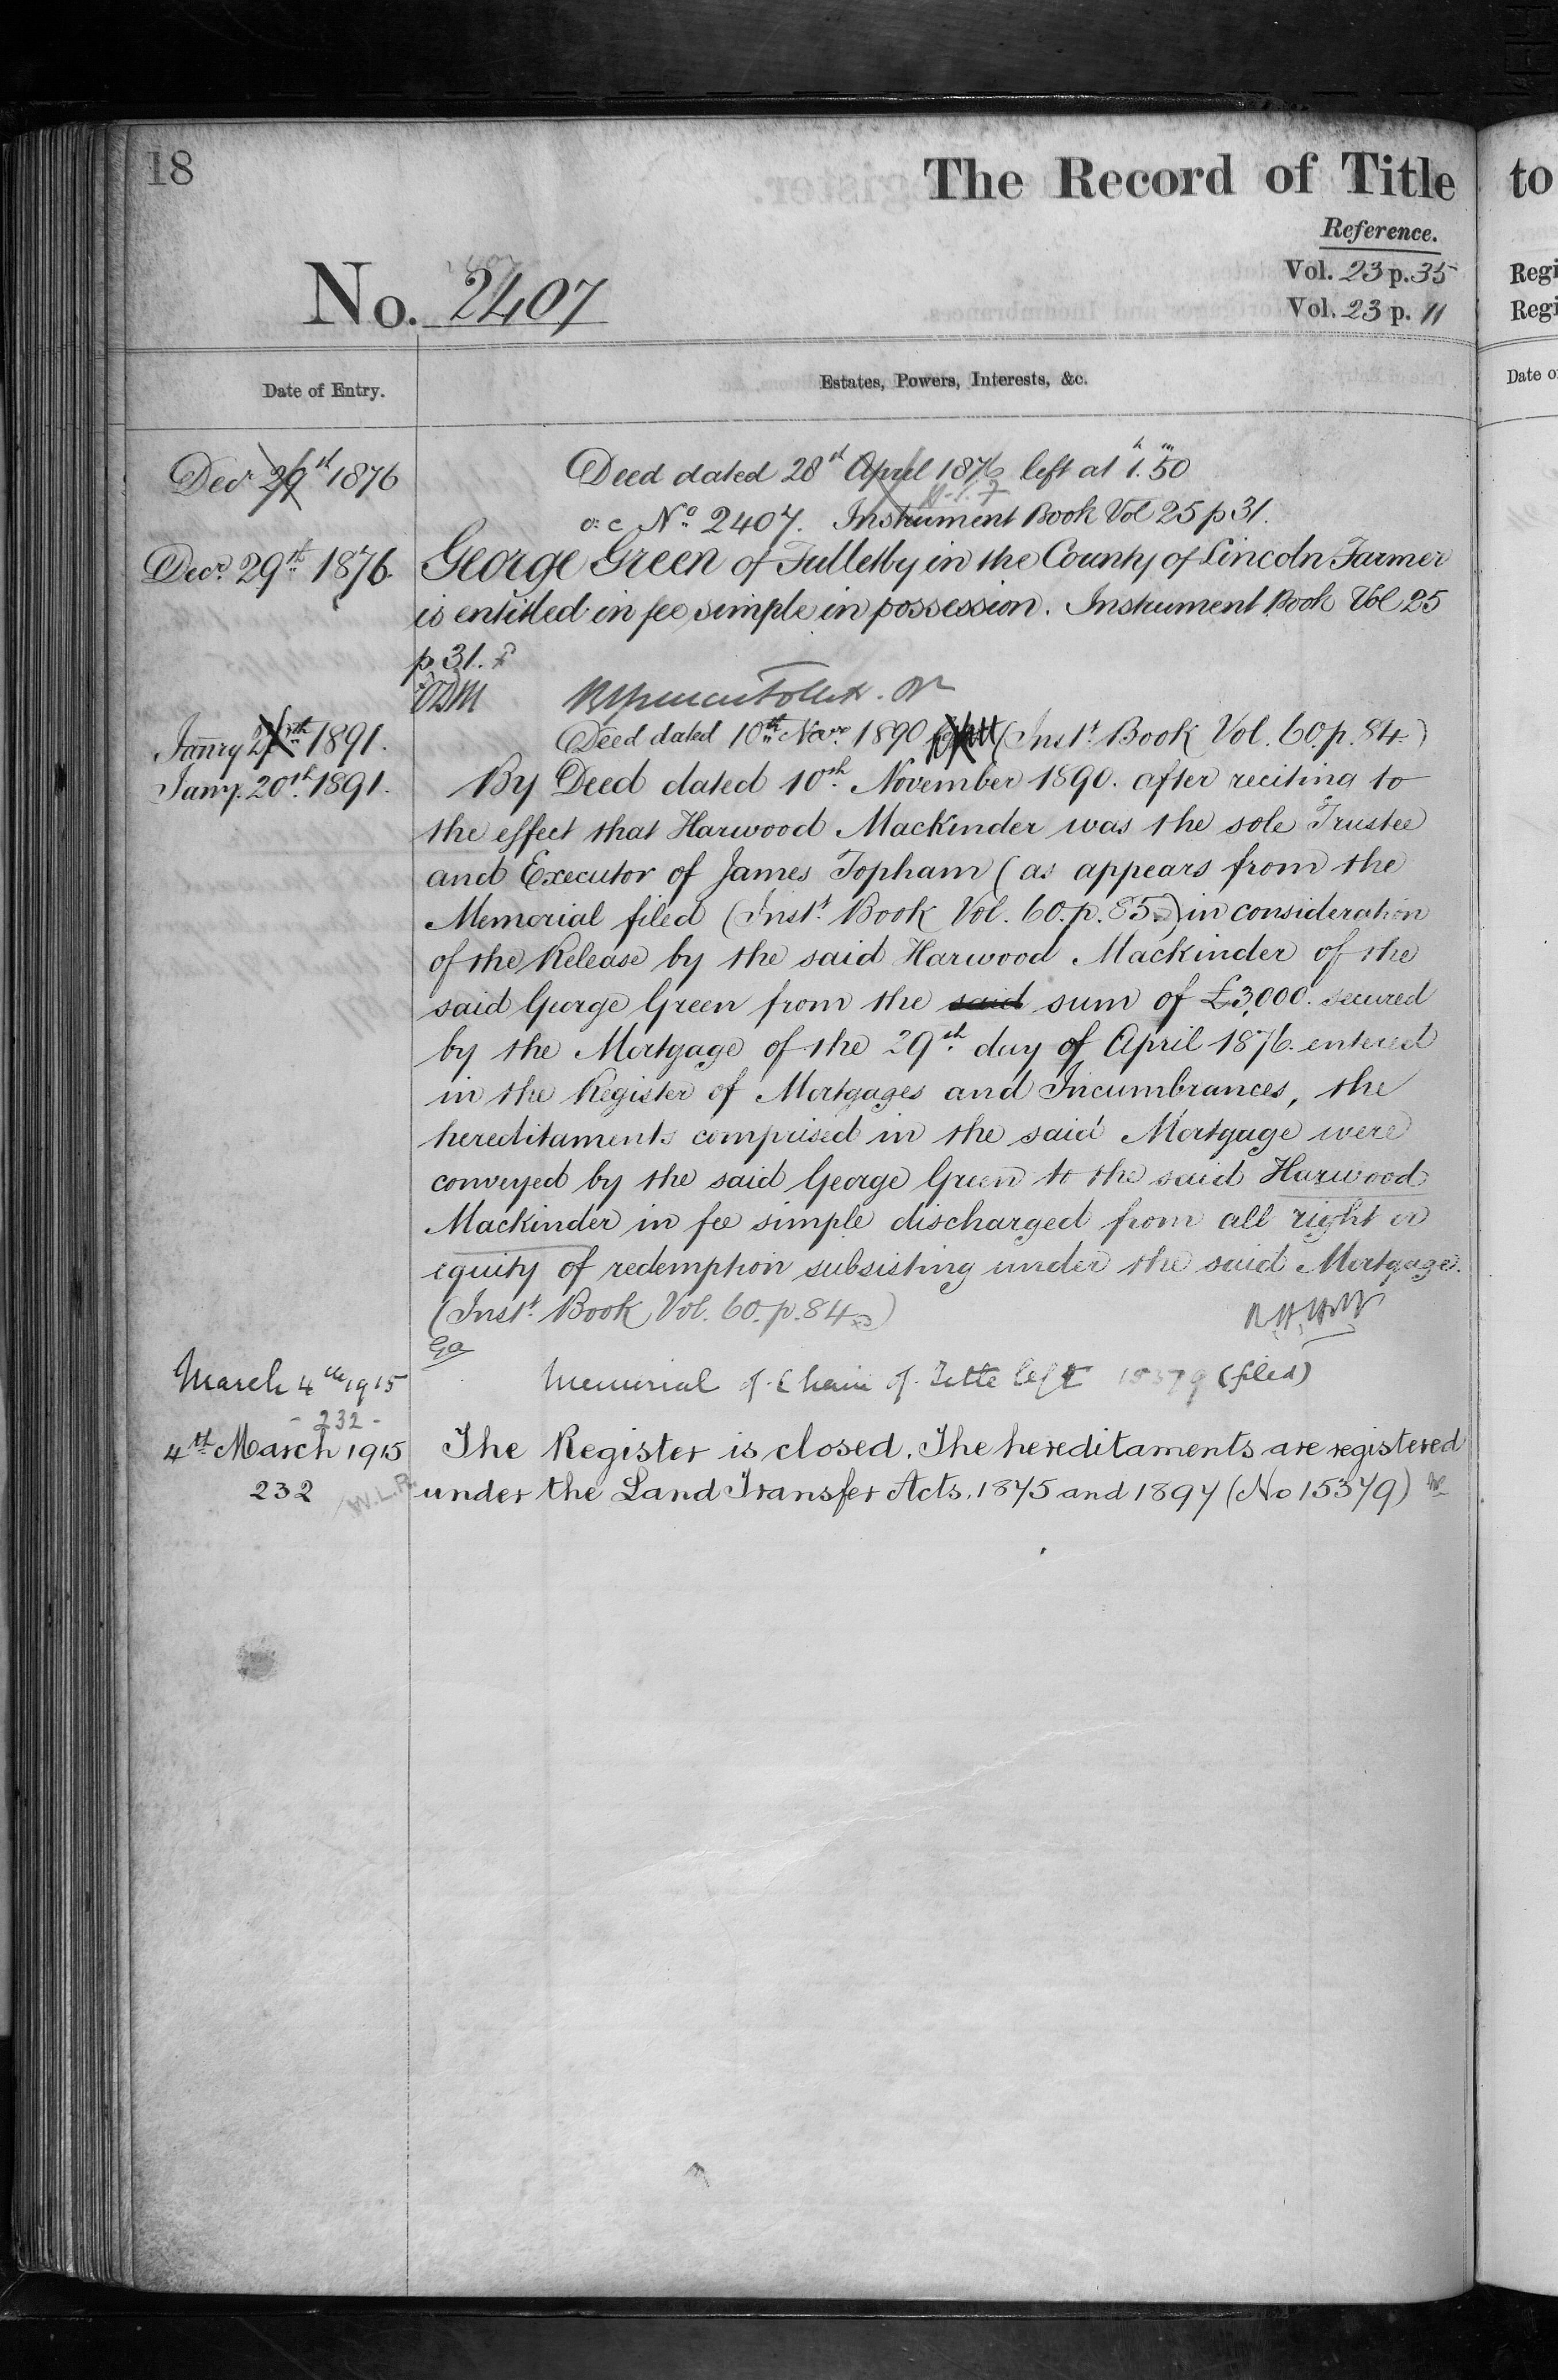 18
The Record of Title
to
Reference.
Vol. 23 p. 35
Vol. 23 p. 11
Regi
Regi
No. 2407
Date of Entry.
Estates, Powers, Interests, &c.
Date o
Decr 29th 1876
Deed dated 28th April 1876 left at 1h. 50m
o: c No 2407. Instrument Book Vol 25 p 31.
Decr. 29th 1876.
George Green of Fulletby in the County of Lincoln Farmer
is entitled in fee simple in possession. Instrument Book Vol 25
p 31.
Janry 1891.
Deed dated 10th Novr. 1890 (Inst. Book Vol. 60. p. 84.)
Jany. 20th. 1891.
By Deed dated 10th. November 1890. after reciting to
the effect that Harwood Mackinder was the sole Trustee
and Executor of James Topham (as appears from the
Memorial filed (Inst. Book Vol. 60. p. 85.) in consideration
of the Release by the said Harwood Mackinder of the
said George Green from the said sum of £3,000. secured
by the Mortgage of the 29th. day of April 1876. entered
in the Register of Mortgages and Incumbrances, the
hereditaments comprised in the said Mortgage were
conveyed by the said George Green to the said Harwood
Mackinder in fee simple discharged from all right or
equity of redemption subsisting under the said Mortgage.
(Inst. Book Vol. 60. p. 84.)
March 4th 1915
- 232 -
Memorial of Chain of Title left 15379 (filed)
4th March 1915
232
W.L.R.
The Register is closed. The hereditaments are registered
under the Land Transfer Acts. 1875 and 1897 (No 15379)